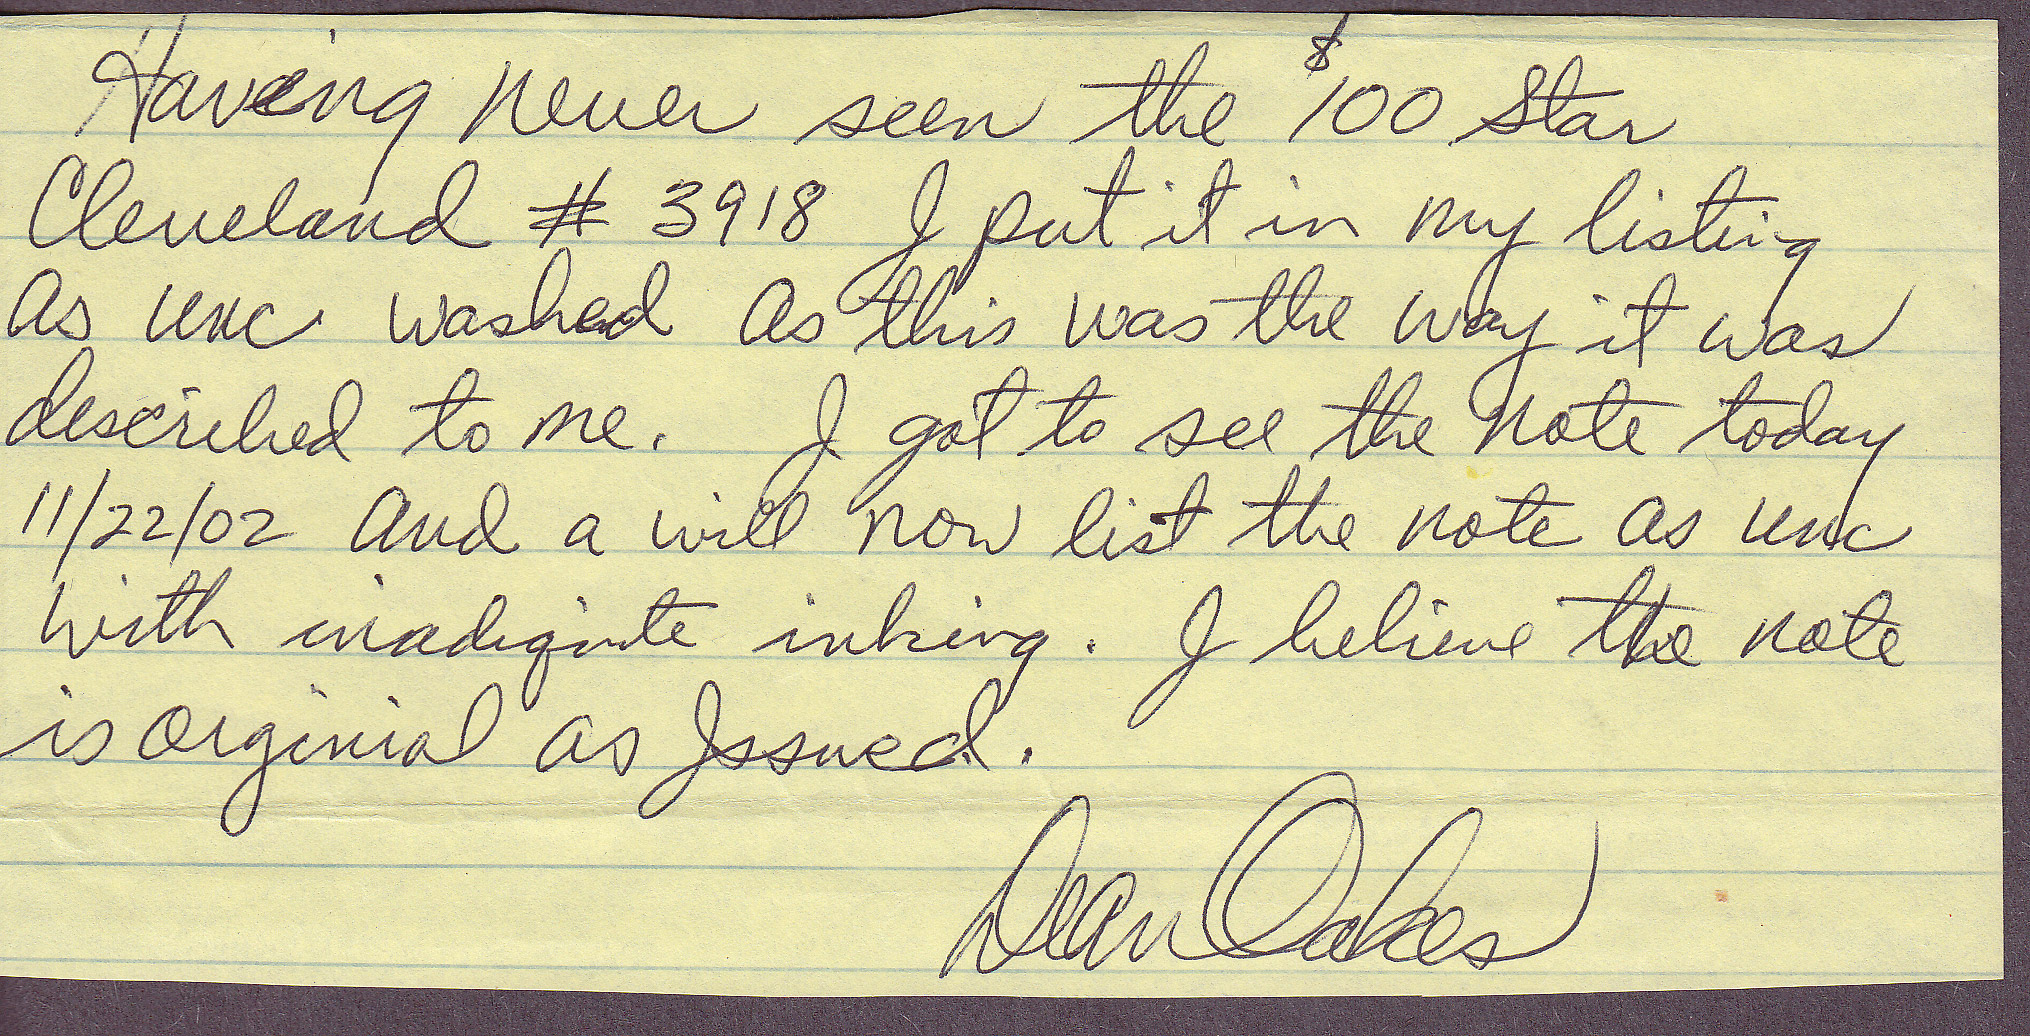 Having never seen the $100 Star
Cleveland # 3918 I put it in my listing
as unc washed as this was the way it was
described to me. I got to see the note today
11/22/02 and a will now list the note as unc
with inadiqute inking. I believe the note
is orginial as Issued.
Dean Oakes